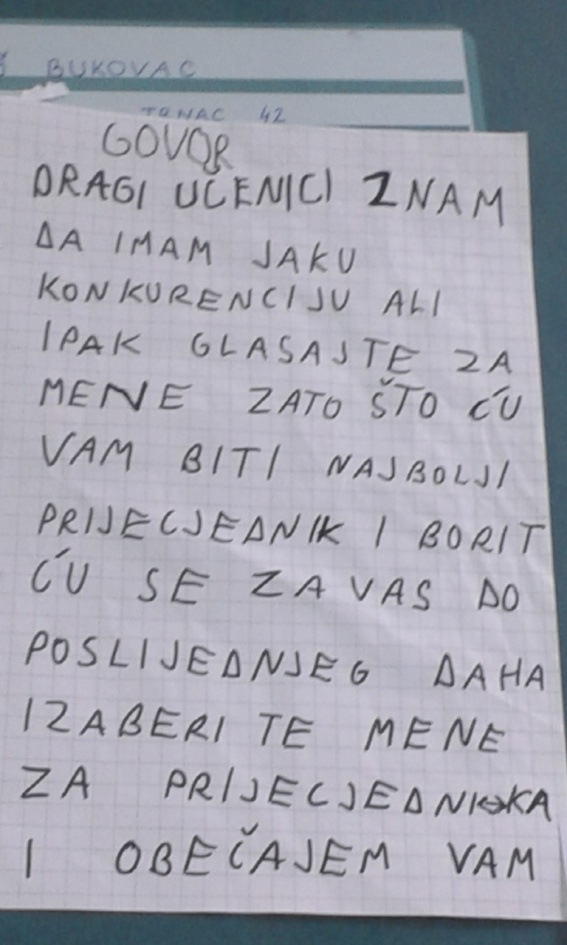 BUKOVAC
42
GOVOR
DRAGI UČENICI ZNAM
DA IMAM JAKU
KONKURENCIJU ALI
IPAK GLASAJTE ZA
MENE ZATO ŠTO ĆU
VAM BITI NAJBOLJI
PRIJECJEDNIK I BORIT
ĆU SE ZA VAS DO
POSLIJEDNJEG DAHA
IZABERI TE MENE
ZA PRIJECJEDNIKA
I OBEČAJEM VAM